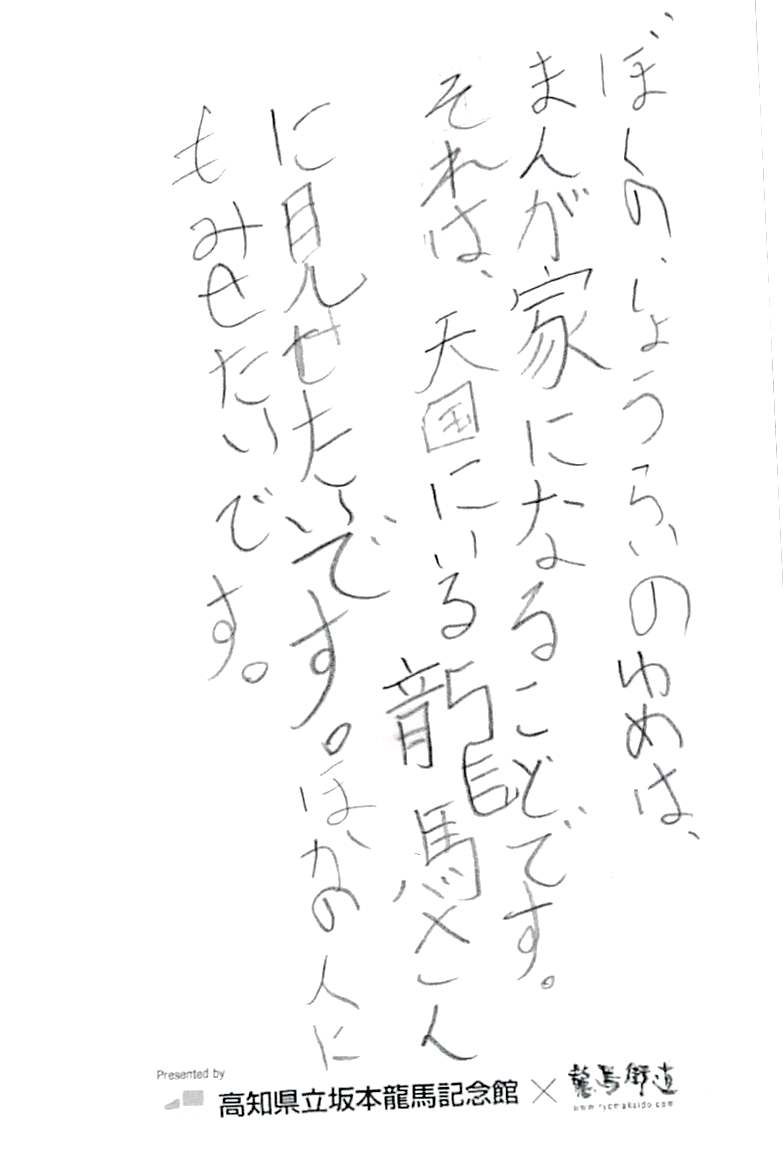 ぼくの、しょうらいのゆめは、
まんが家になることです。
それは、天国にいる龍馬さん
に見せたいです。ほかの人に
もみせたいです。
Presented by
高知県立坂本龍馬記念館×龍馬街道
www.ryomakaido.com